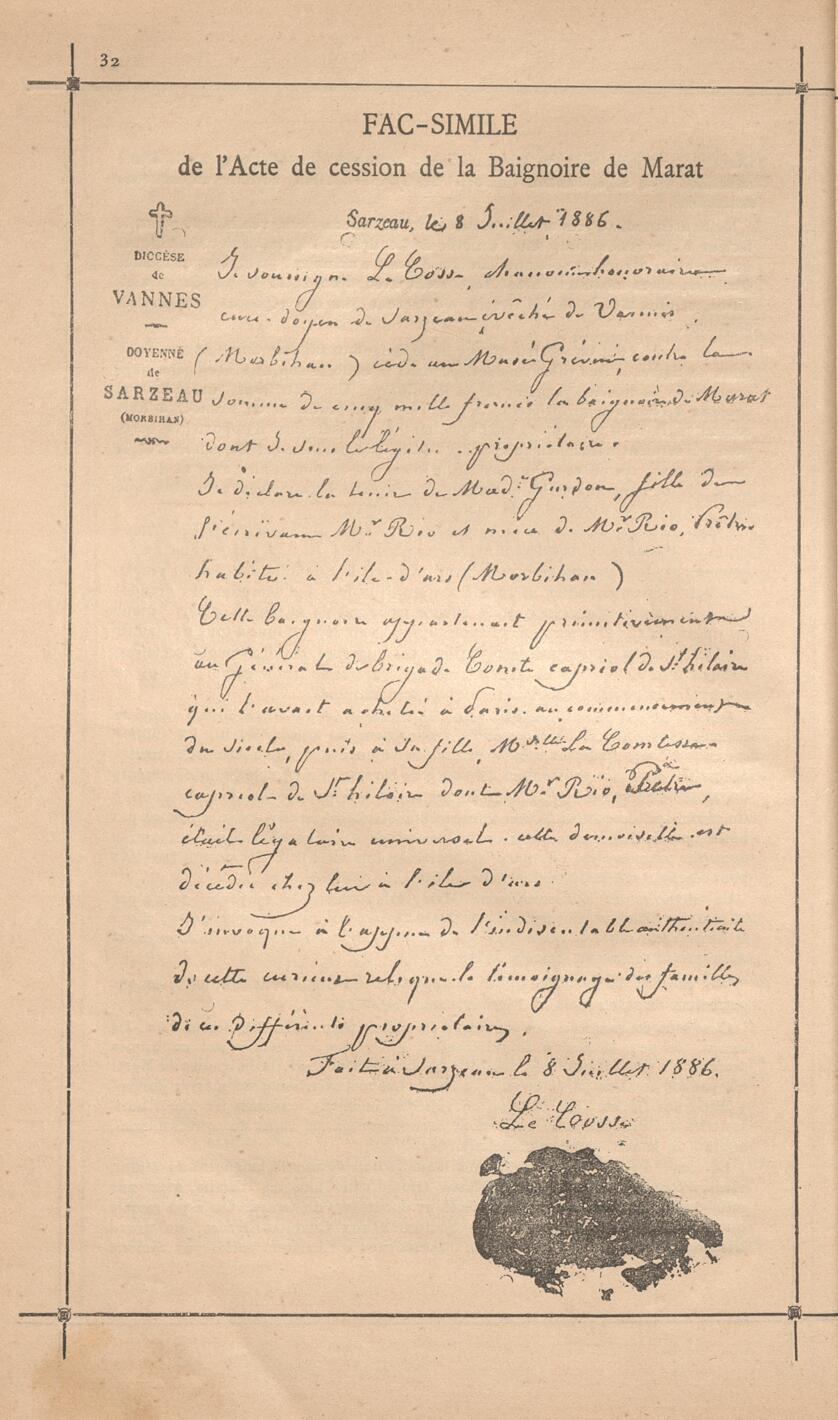 32
FAC-SIMILE
de l'Acte de cession de la Baignoire de Marat
DIOCÈSE
de
VANNES
DOYENNÉ
de
SARZEAU
(MORBIHAN)
Sarzeau, le 8 Juillet 1886.
Je soussigné Le Cosse, chanoine honoraire
curé-doyen de Sarzeau évêché de Vannes
(Morbihan) cède au Musée Grévin, contre la
somme de cinq mille francs la baignoire de Marat
dont je suis le légitime propriétaire.
Je déclare la tenir de Made Gurdon, fille de
l'écrivain Mr Rio et nièce de Mr Rio, Prêtre
habitué à l'île-d'ars (Morbihan)
Cette baignoire appartenait primitivement
au Général de brigade Comte capriol de St hilaire
qui l'avait achetée à Paris au commencement
du siècle, puis à sa fille, Melle La Comtesse
capriol de St hilaire dont Mr Rio, Prêtre,
était légataire universel. cette demoiselle est
décédée chez lui à l'île d'ars.
J'invoque à l'appui de l'indiscutable authenticité
de cette curieuse relique le témoignage des familles
de ces différents propriétaires.
Fait à Sarzeau le 8 Juillet 1886.
Le Cosse